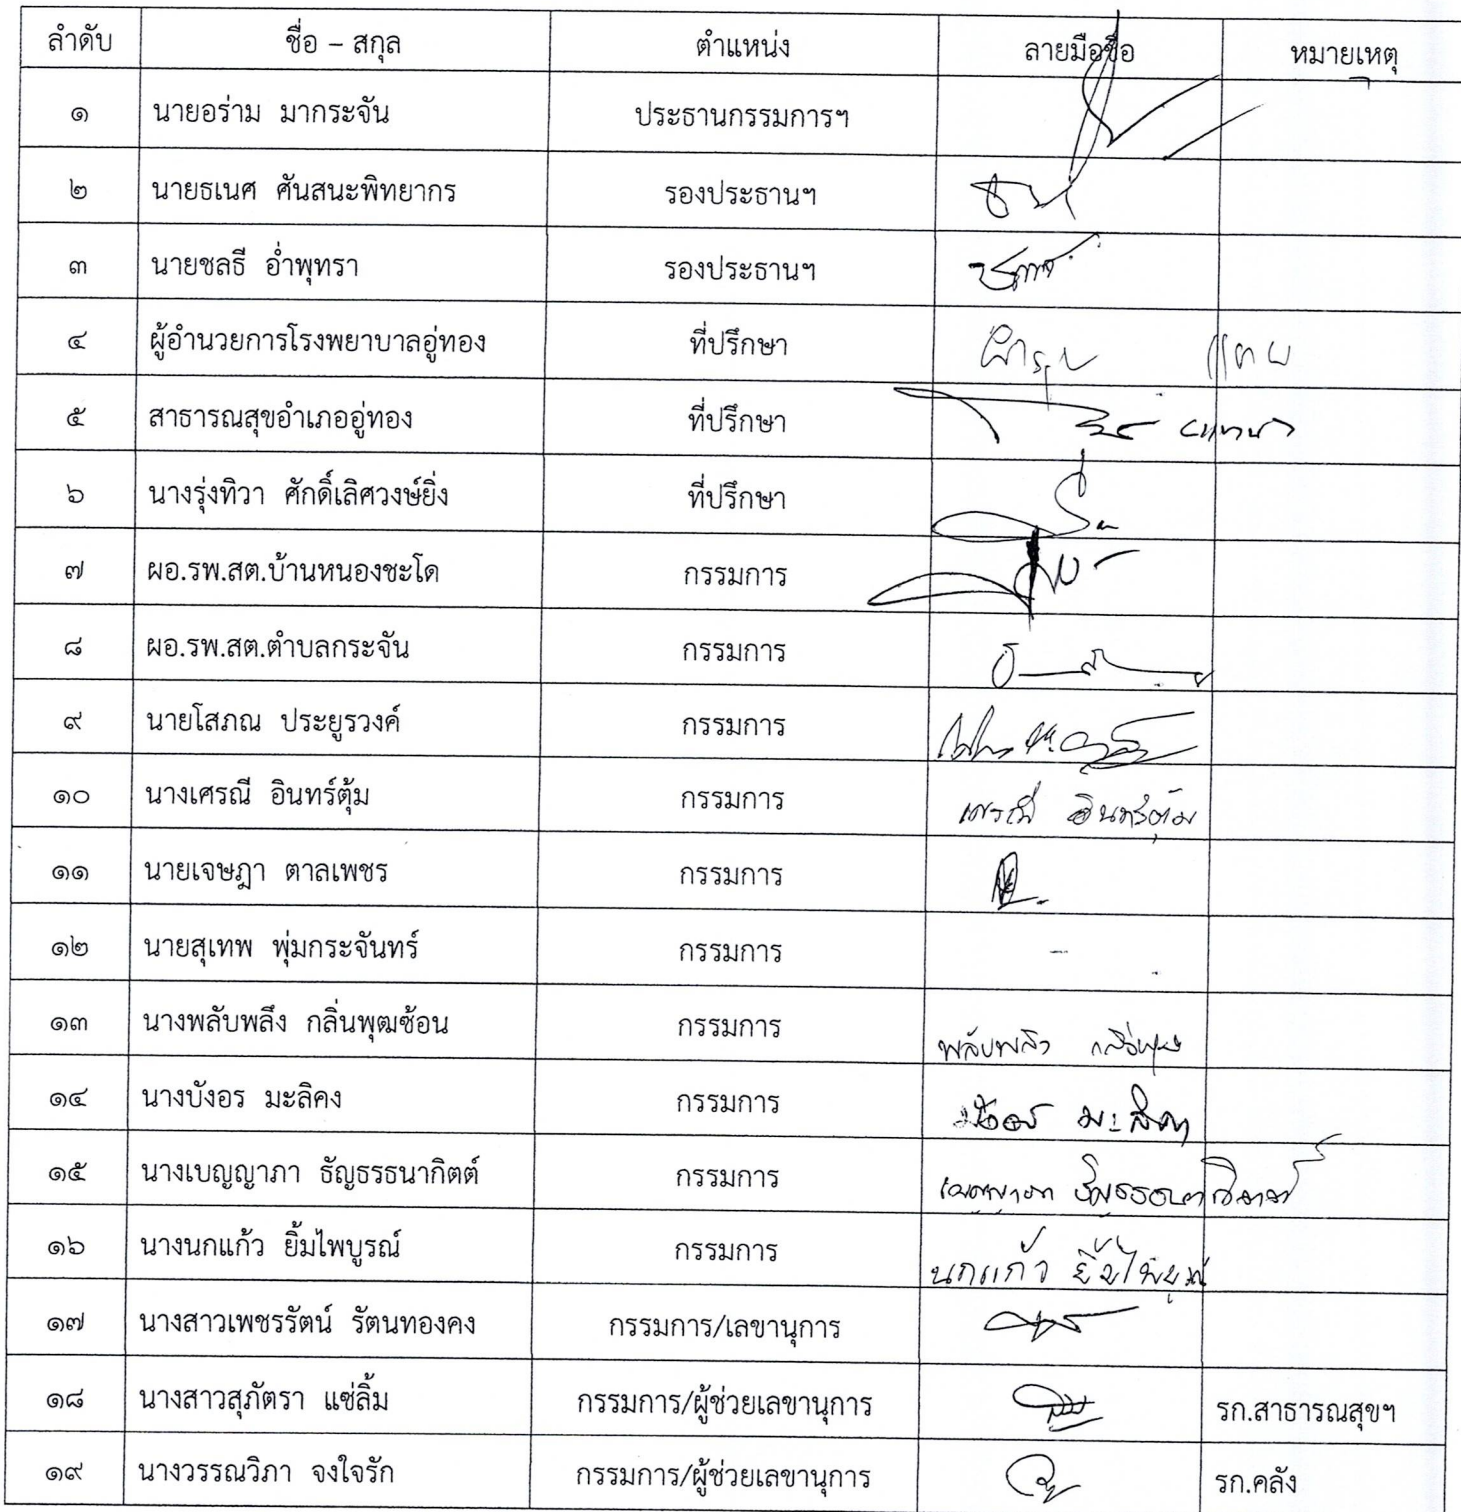 ลำดับ ชื่อ – สกุล ตำแหน่ง ลายมือชื่อ หมายเหตุ
๑ นายอร่าม มากระจัน ประธานกรรมการฯ
๒ นายธเนศ ศันสนะพิทยากร รองประธานฯ
๓ นายชลธี อ่ำพุทรา รองประธานฯ
๔ ผู้อำนวยการโรงพยาบาลอู่ทอง ที่ปรึกษา แทน
๕ สาธารณสุขอำเภออู่ทอง ที่ปรึกษา
๖ นางรุ่งทิวา ศักดิ์เลิศวงษ์ยิ่ง ที่ปรึกษา
๗ ผอ.รพ.สต.บ้านหนองชะโด กรรมการ
๘ ผอ.รพ.สต.ตำบลกระจัน กรรมการ
๙ นายโสภณ ประยูรวงค์ กรรมการ
๑๐ นางเศรณี อินทร์ตุ้ม กรรมการ เศรณี อินทร์ตุ้ม
๑๑ นายเจษฎา ตาลเพชร กรรมการ
๑๒ นายสุเทพ พุ่มกระจันทร์ กรรมการ -
๑๓ นางพลับพลึง กลิ่นพุฒซ้อน กรรมการ พลับพลึง
๑๔ นางบังอร มะลิคง กรรมการ บังอร มะลิคง
๑๕ นางเบญญาภา ธัญธรธนากิตต์ กรรมการ เบญญาภา
๑๖ นางนกแก้ว ยิ้มไพบูรณ์ กรรมการ นกแก้ว ยิ้มไพบูรณ์
๑๗ นางสาวเพชรรัตน์ รัตนทองคง กรรมการ/เลขานุการ
๑๘ นางสาวสุภัตรา แซ่ลิ้ม กรรมการ/ผู้ช่วยเลขานุการ รก.สาธารณสุขฯ
๑๙ นางวรรณวิภา จงใจรัก กรรมการ/ผู้ช่วยเลขานุการ รก.คลัง